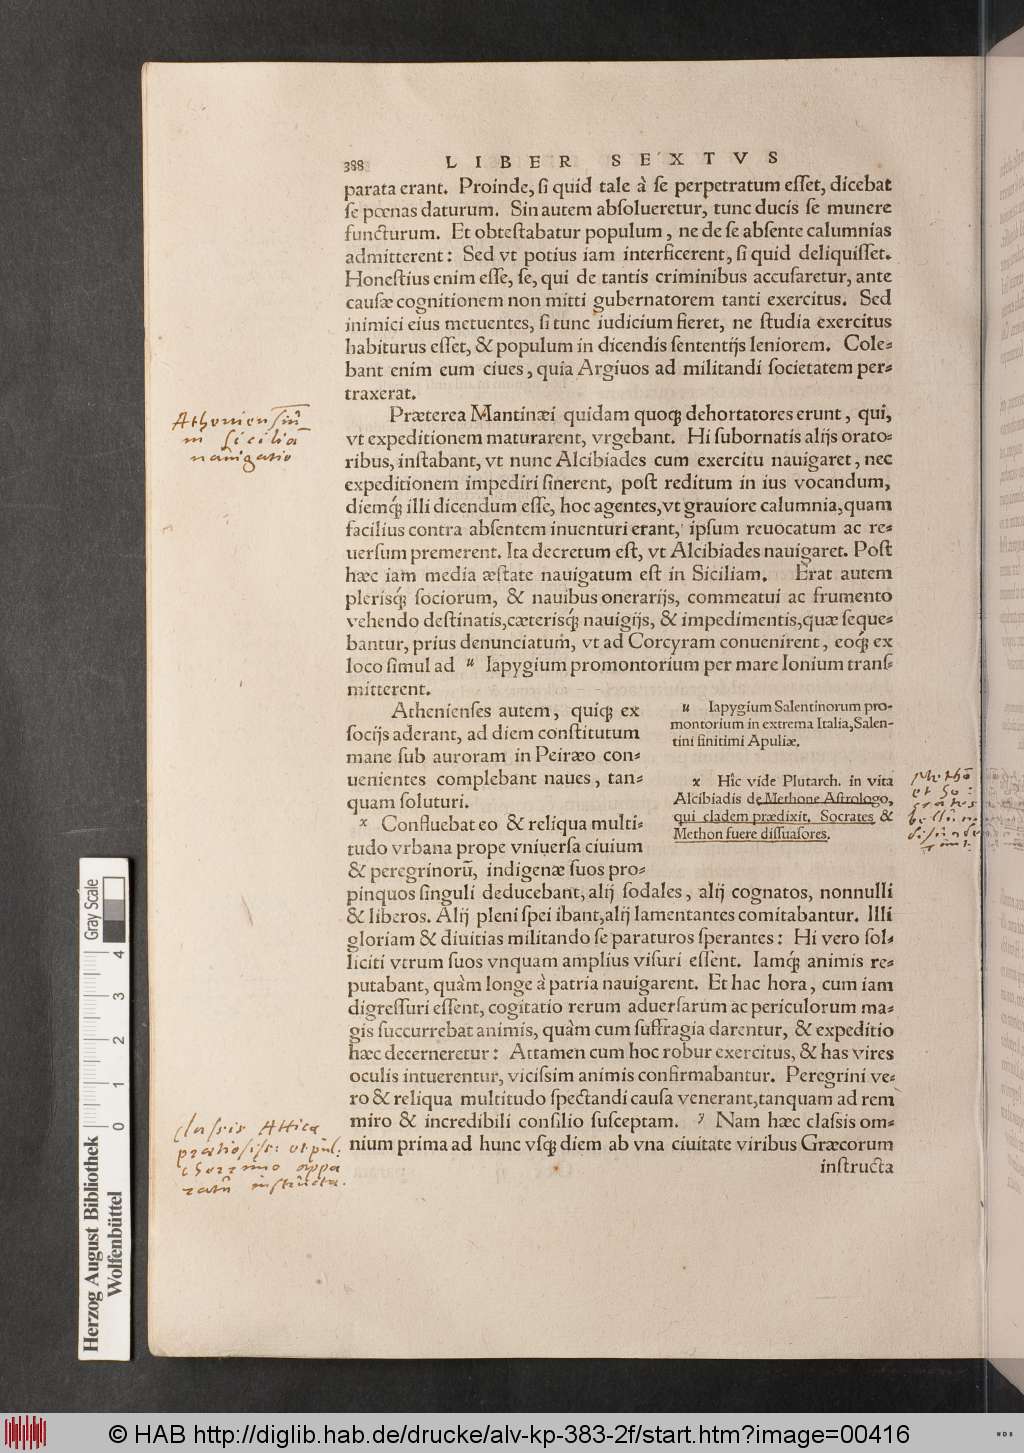 388 LIBER SEXTVS
parata erant. Proinde, ſi quid tale à ſe perpetratum eſſet, dicebat
ſe pœnas daturum. Sin autem abſolueretur, tunc ducis ſe munere
functurum. Et obteſtabatur populum, ne de ſe abſente calumnias
admitterent: Sed vt potius iam interficerent, ſi quid deliquiſſet.
Honeſtius enim eſſe, ſe, qui de tantis criminibus accuſaretur, ante
cauſæ cognitionem non mitti gubernatorem tanti exercitus. Sed
inimici eius metuentes, ſi tunc iudicium fieret, ne ſtudia exercitus
habiturus eſſet, & populum in dicendis ſententijs leniorem. Cole=
bant enim eum ciues, quia Argiuos ad militandi ſocietatem per=
traxerat.
Præterea Mantinæi quidam quoqꝫ dehortatores erunt, qui,
vt expeditionem maturarent, vrgebant. Hi ſubornatis alijs orato=
ribus, inſtabant, vt nunc Alcibiades cum exercitu nauigaret, nec
expeditionem impediri ſinerent, poſt reditum in ius vocandum,
diemqꝫ́ illi dicendum eſſe, hoc agentes, vt grauiore calumnia, quam
facilius contra abſentem inuenturi erant, ipſum reuocatum ac re=
uerſum premerent. Ita decretum eſt, vt Alcibiades nauigaret. Poſt
hæc iam media æſtate nauigatum eſt in Siciliam. Erat autem
plerisqꝫ́ ſociorum, & nauibus onerarijs, commeatui ac frumento
vehendo deſtinatis, cæterisqꝫ́ nauigijs, & impedimentis, quæ ſeque=
bantur, prius denunciatum, vt ad Corcyram conuenirent, eoqꝫ́ ex
loco ſimul ad u Iapygium promontorium per mare Ionium tranſ=
mitterent.
Athenienſes autem, quiqꝫ ex
ſocijs aderant, ad diem conſtitutum
mane ſub auroram in Peiræo con=
uenientes complebant naues, tan=
quam ſoluturi.
x Confluebat eo & reliqua multi=
tudo vrbana prope vniuerſa ciuium
& peregrinorū, indigenæ ſuos pro=
pinquos ſinguli deducebant, alij ſodales, alij cognatos, nonnulli
& liberos. Alij pleni ſpei ibant, alij lamentantes comitabantur. Illi
gloriam & diuitias militando ſe paraturos ſperantes: Hi vero ſol=
liciti vtrum ſuos vnquam amplius viſuri eſſent. Iamqꝫ́ animis re=
putabant, quàm longe à patria nauigarent. Et hac hora, cum iam
digreſſuri eſſent, cogitatio rerum aduerſarum ac periculorum ma=
gis ſuccurrebat animis, quàm cum ſuffragia darentur, & expeditio
hæc decerneretur: Attamen cum hoc robur exercitus, & has vires
oculis intuerentur, viciſsim animis confirmabantur. Peregrini ve=
ro & reliqua multitudo ſpectandi cauſa venerant, tanquam ad rem
miro & incredibili conſilio ſuſceptam. y Nam hæc claſsis om=
nium prima ad hunc vſqꝫ diem ab vna ciuitate viribus Græcorum
inſtructa
u Iapygium Salentinorum pro-
montorium in extrema Italia, Salen-
tini finitimi Apuliæ.
x Hîc vide Plutarch. in vita
Alcibiadis de Methone Aſtrologo,
qui cladem prædixit. Socrates &
Methon fuere diſſuaſores.
Atheniensiū
in Sicilia
nauigatio
Methō
et So:
crates
bellū
Classis Attica
prætiosiss: et pul:
cherrimo appa
ratū instructa.
Gray Scale
0 1 2 3 4
Herzog August Bibliothek
Wolfenbüttel
© HAB http://diglib.hab.de/drucke/alv-kp-383-2f/start.htm?image=00416